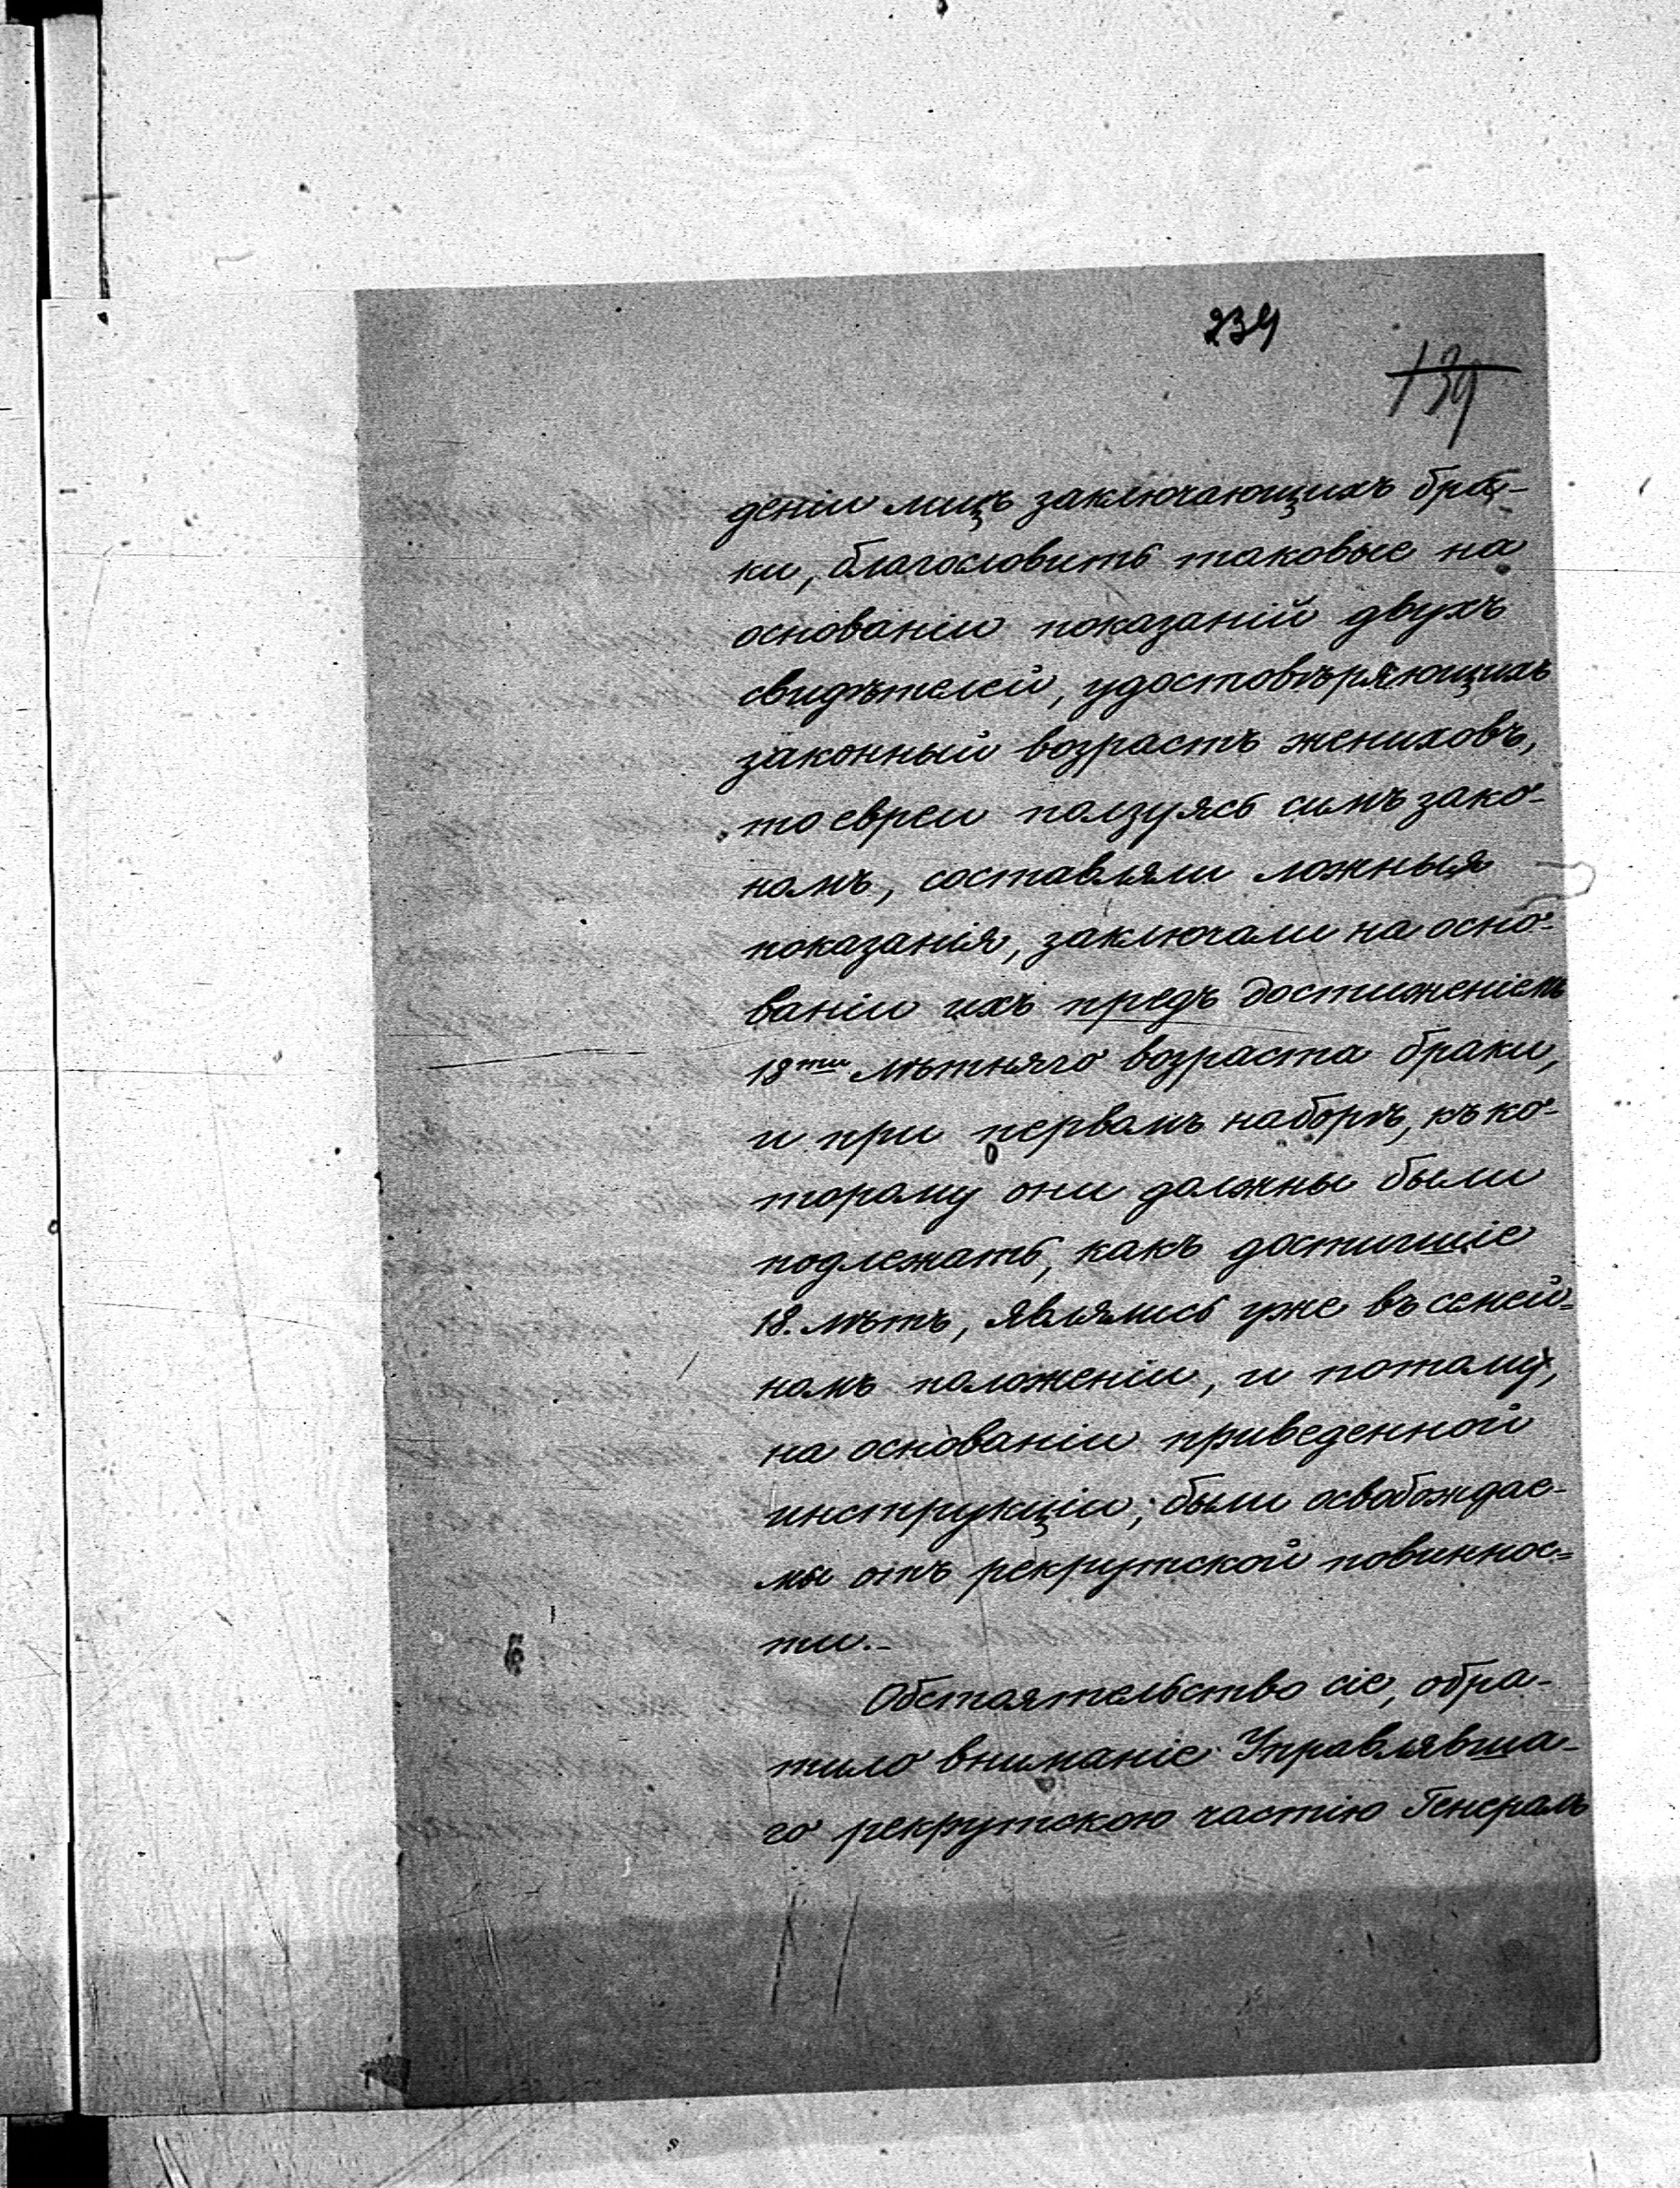 234
139
деніи лицъ заключающихъ бра-
ки, благословить таковые на
основаніи показаній двухъ
свидѣтелей, удостовѣряющихъ
законный возрастъ жениховъ,
то евреи ползуясь симъ зако-
номъ, составляли ложныя
показанія, заключали на осно-
ваніи ихъ предъ достиженіемъ
18ти лѣтняго возраста браки,
и при первомъ наборѣ, къ ко-
торому они должны были
подлежать, какъ достигшіе
18. лѣтъ, являлись уже въ семей-
номъ положеніи, и потому,
на основаніи приведенной
инструкціи, были освобождае-
мы отъ рекрутской повиннос-
ти.-
Обстоятельство сіе, обра-
тило вниманіе Управлявша-
го рекрутскою частію Генералъ